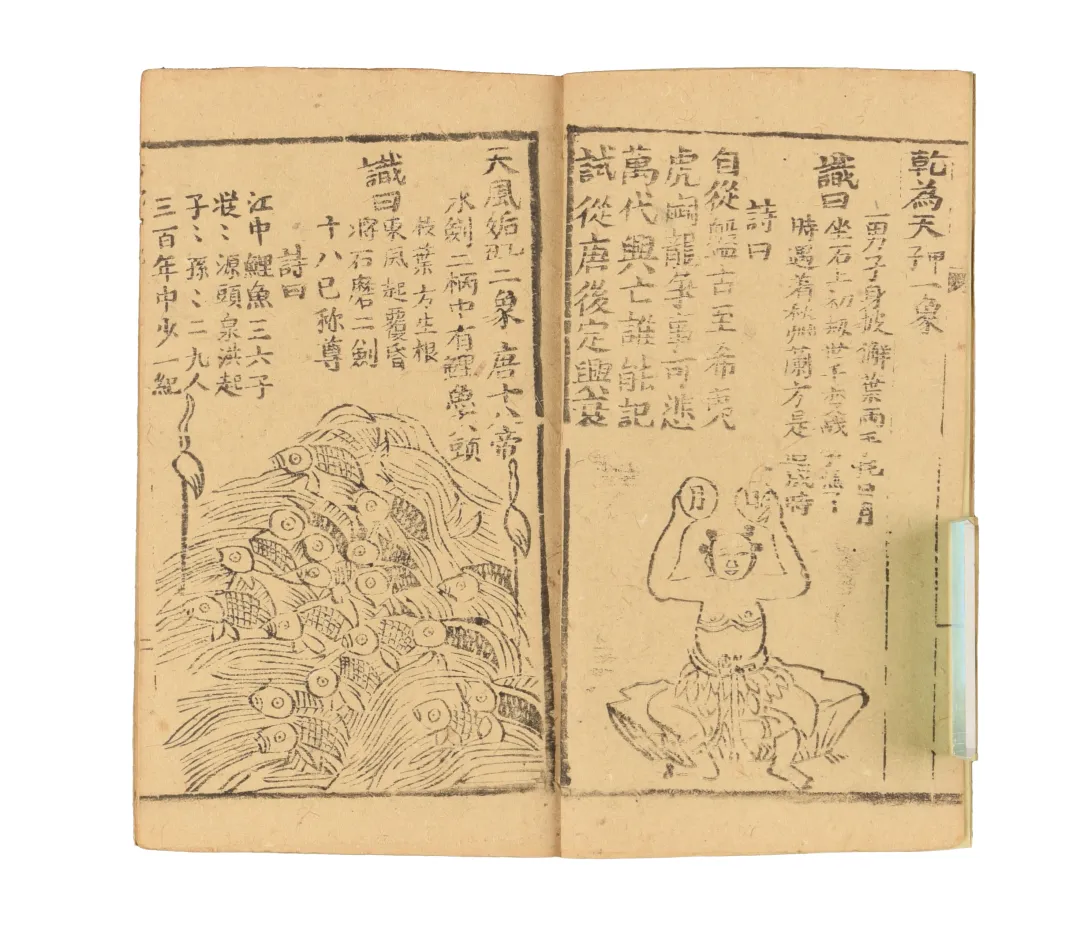 乾為天 甲子 一象
一男子身披𧦬葉兩手托日月
讖曰
坐石上初
時遇着 方是 時
詩曰
自從盤古至希夷
虎鬪龍爭事可悲
萬代興亡誰能記
試從唐後定興衰
月
天風姤 二象 唐十八帝
水劍二柄中有鯉魚 頭
枝葉方生根
讖曰
東風起覆昏
將石磨二劍
十八已称尊
詩曰
江中鯉魚三六子
源頭泉洪起
子〻孫〻二九人
三百年中少一紀